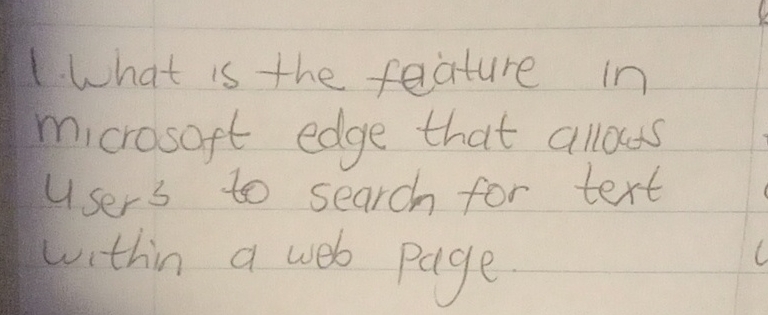 1. What is the feature in
microsoft edge that allows
users to search for text
within a web page.